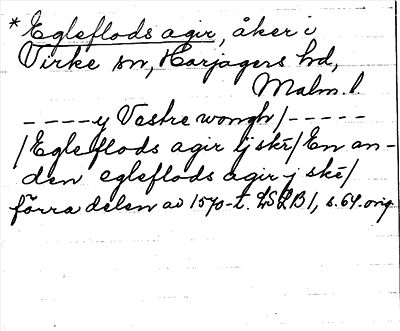 * Egleflods agir, åker i
Virke sn, Harjagers hd,
Malm. l.
- - - - y Vestre wongh / - - - - -
/ Egleflods agir ij skr / En an-
den egleflods agir j ske /
förra delen av 1570-t. LSLB 1, s. 64. orig